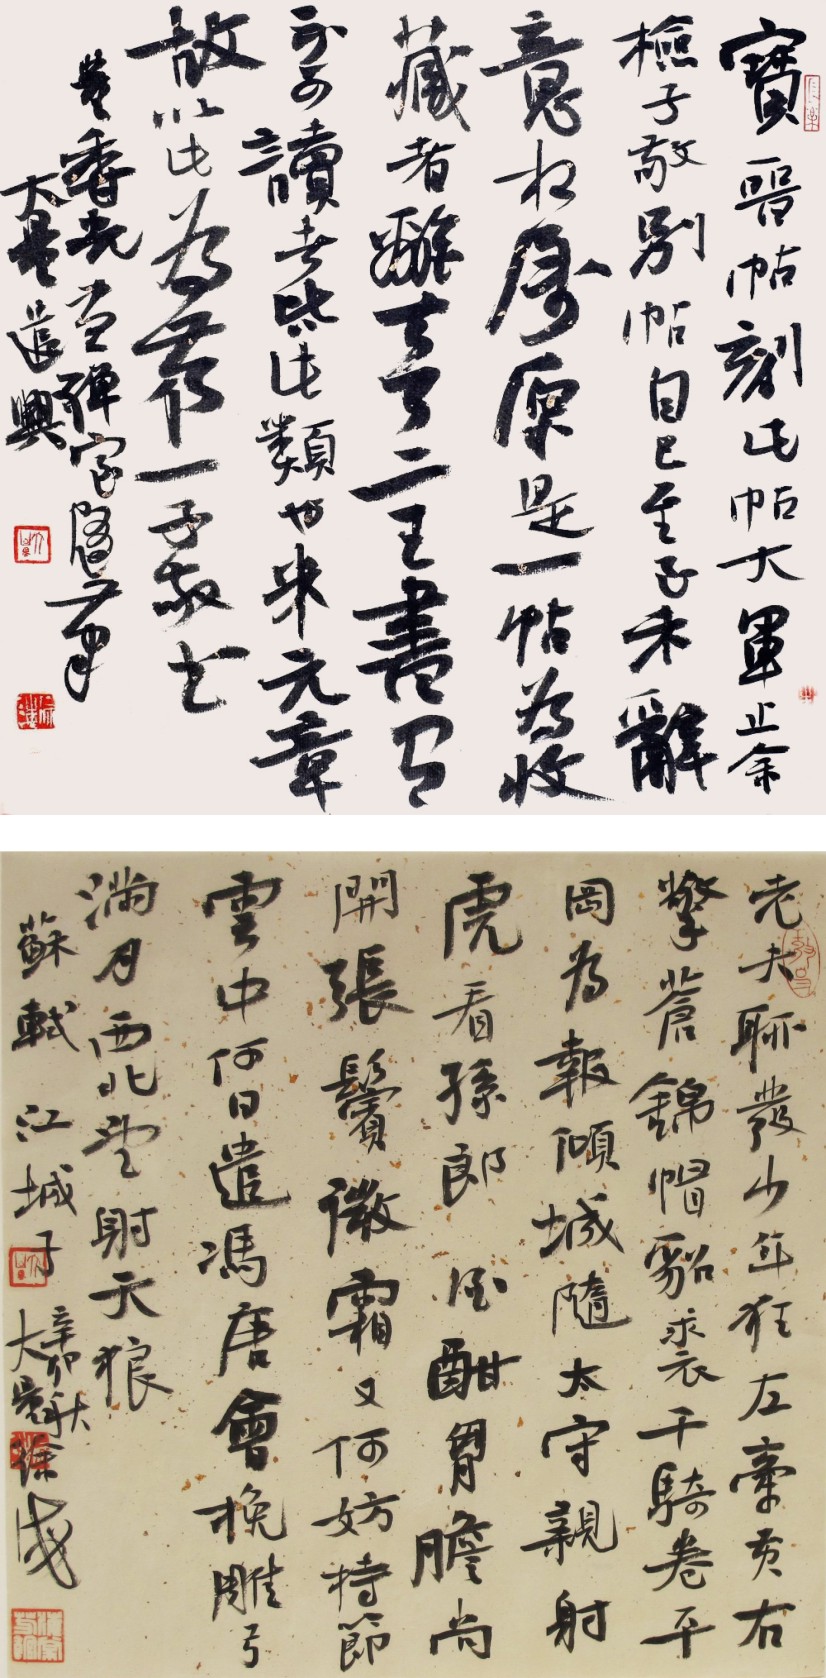 寶晉帖刻此帖大軍止余
檢子敬別帖自已至子未辭
意相屬原是一帖為收
藏者離去耳二王書有
不可讀者皆此類也米元章
故以此為一子敬書
董香光畫禪室隨筆
大墨遣興
老夫聊發少年狂左牽黃右
擎蒼錦帽貂裘千騎卷平
岡為報傾城隨太守親射
虎看孫郎 酒酣胷膽尚
開張鬢微霜又何妨持節
雲中何日遣馮唐會挽雕弓
滿月西北望射天狼
蘇軾 江城子
辛卯秋
大墨徐